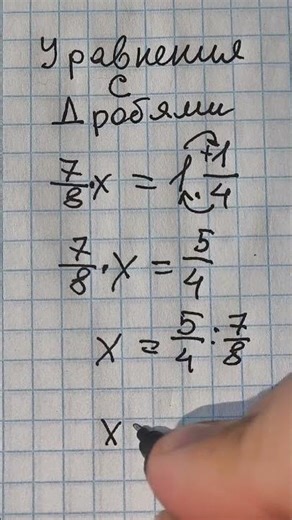 Уравнения
с
Дробями
7/8 · x = 1 1/4
7/8 · x = 5/4
x = 5/4 : 7/8
x